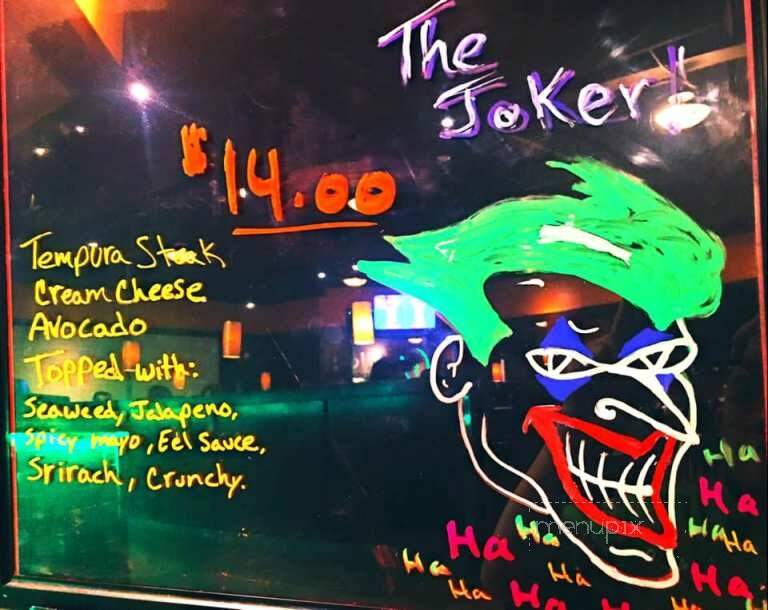 The
Joker!
$14.00
Tempura Steak
Cream Cheese
Avocado
Topped with:
Seaweed, Jalapeno,
Spicy mayo, Eel Sauce,
Srirach, Crunchy.
Ha
Ha
Ha Ha HaHa
Ha Ha Ha
Ha Ha
menupix